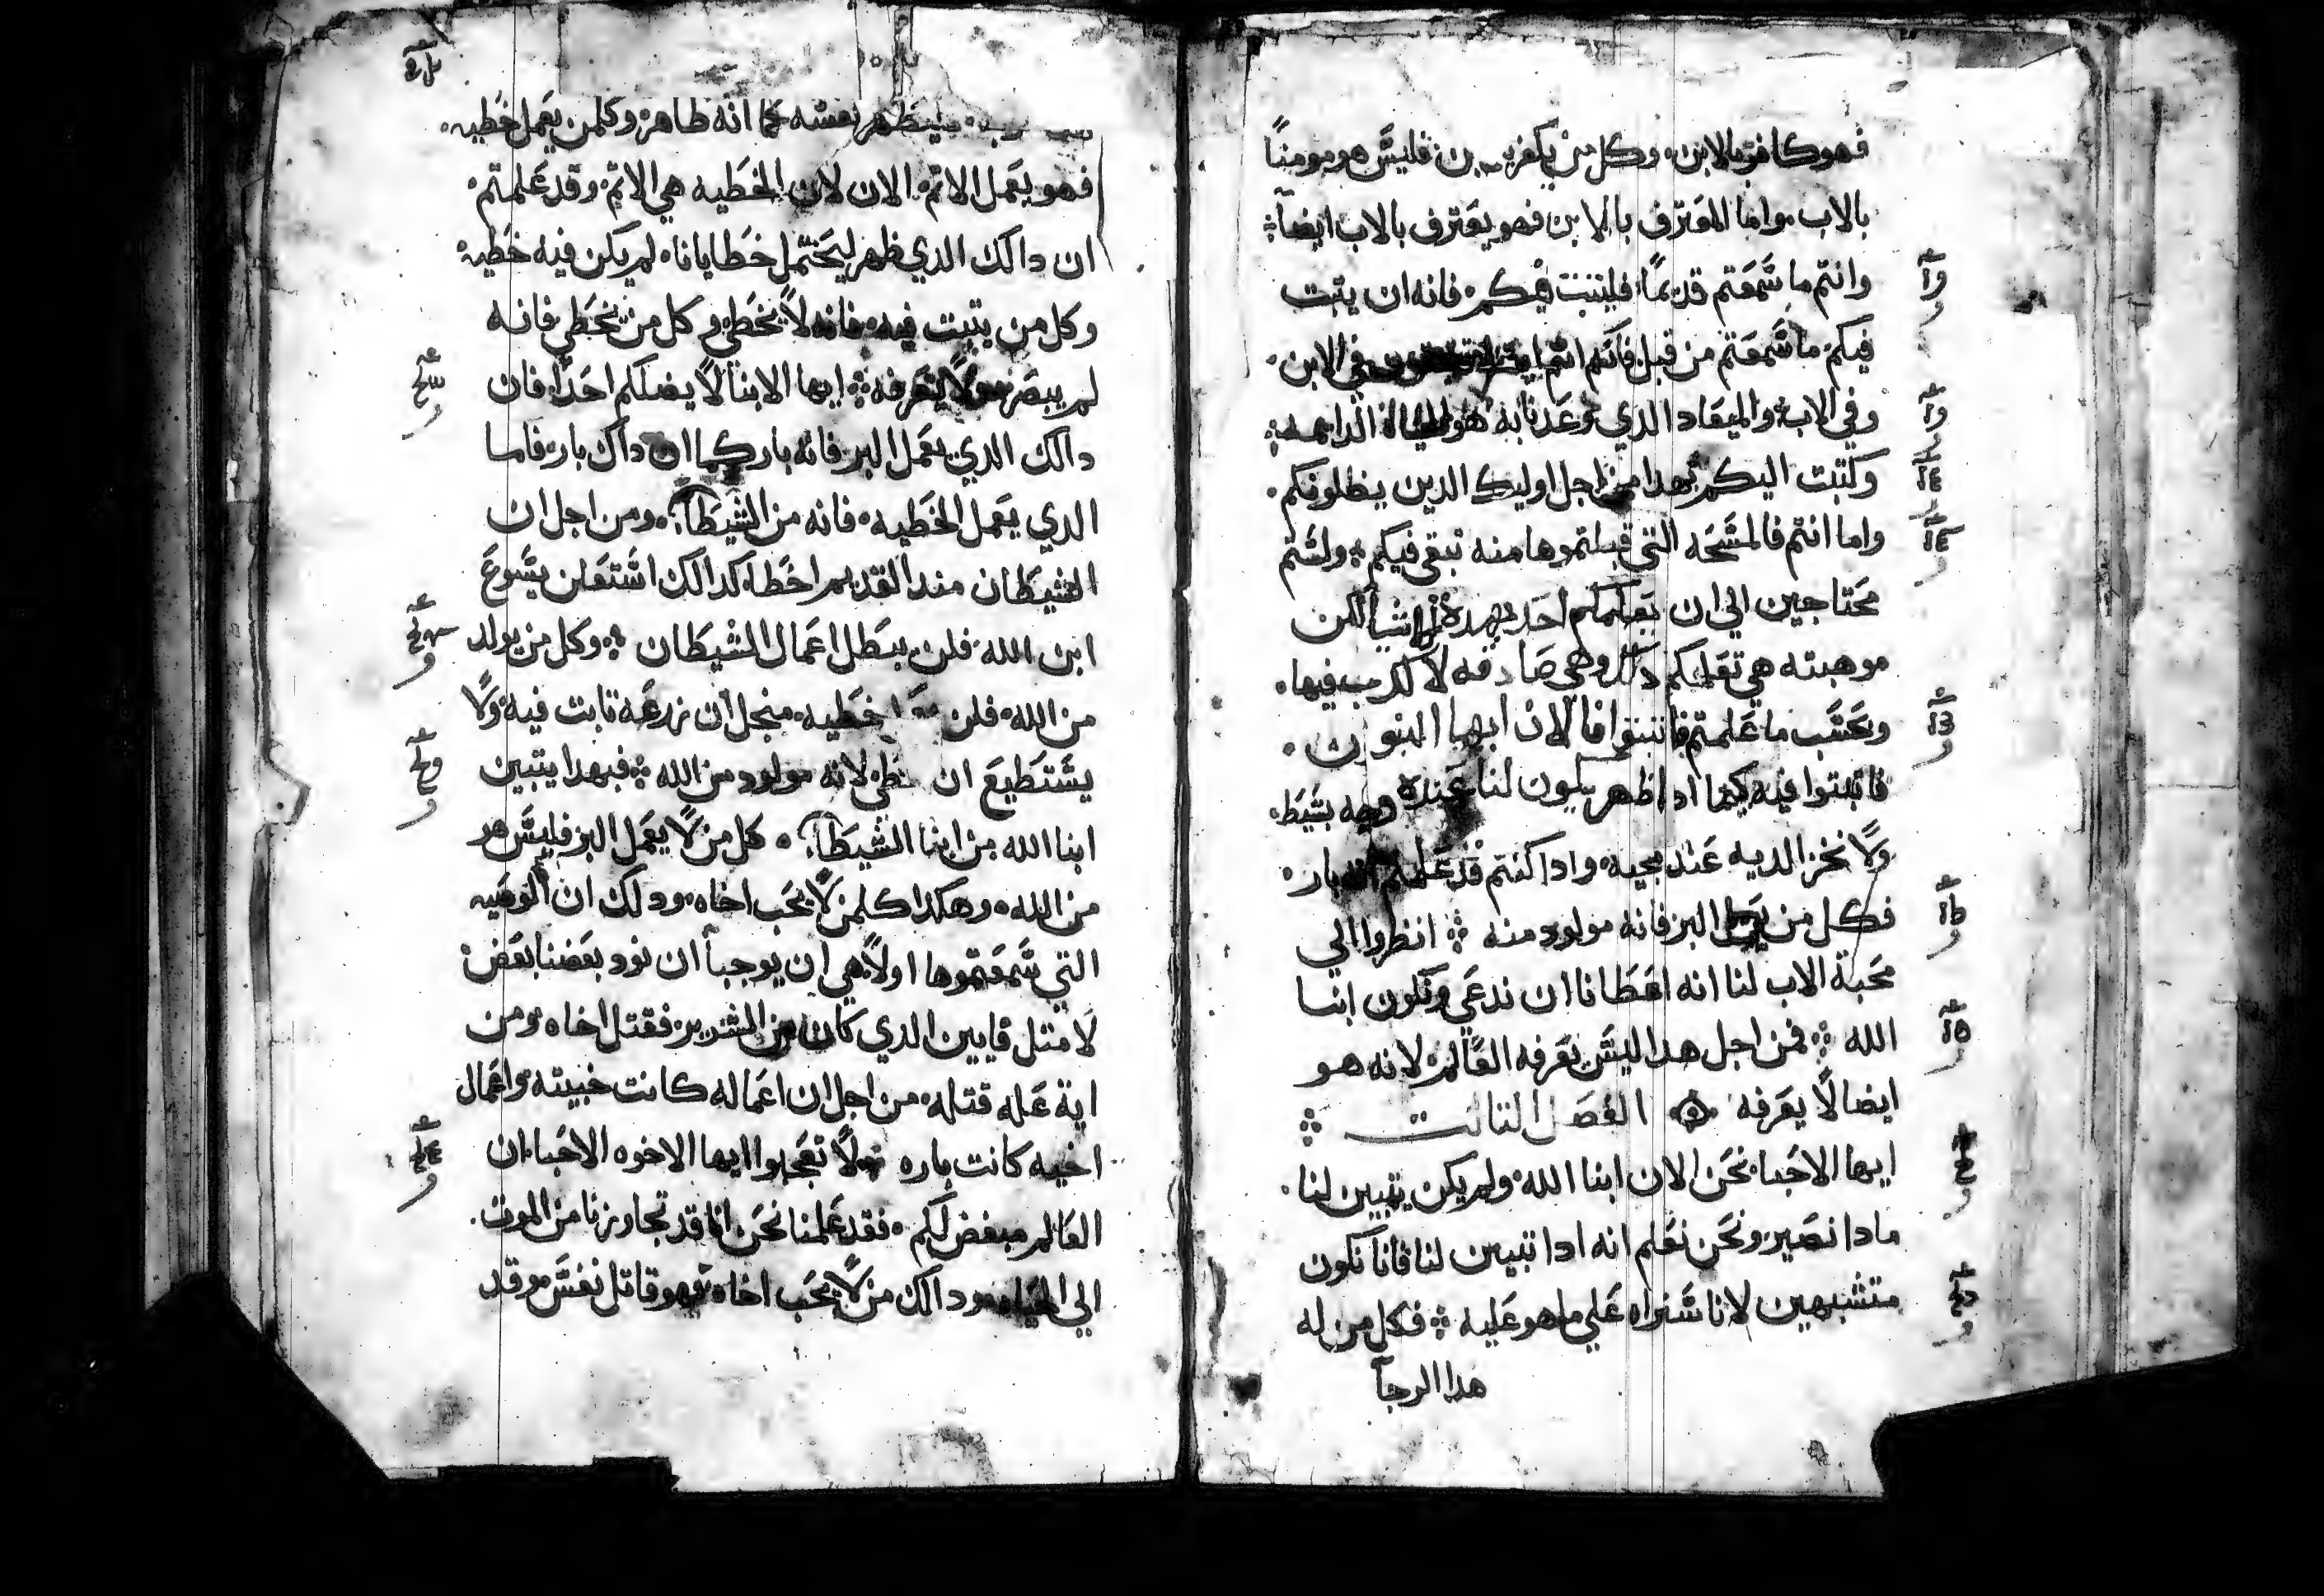 فهو كافر بالابن. وكل من يكفر بالابن فليس هو مومناً
بالاب. واما المعترف بالابن فهو يعترف بالاب ايضاً
وانتم ما سمعتم قديماً فليثبت فيكم. فانه ان يثبت
فيكم ما سمعتم من قبل فانكم انتم ايضا في الابن.
وفي الاب. والميعاد الدي وعدنا به هو الحياه الدايمه
وكتبت اليكم بهدا من اجل اوليك الدين يظلونكم.
واما انتم فالمسحه التي قبلتموها منه تبقي فيكم. ولستم
محتاجين الي ان يعلمكم احد بهده الاشيا لكن
موهبته هي تعلمكم دلك وهي صادقه لا كدب فيها.
وبحسب ما علمتم فاثبتوا فالان ايها البنون.
فاثبتوا فيه كيما ادا ظهر يكون لنا عنده وجه بسيط.
ولا نخزا لديه عند مجيه. وادا كنتم قد علمتم انه بار.
فكل من يعمل البر فانه مولود منه انظروا الي
محبة الاب لنا انه اعطانا ان ندعي ونكون ابنا
الله فمن اجل هدا ليس يعرفه العالم. لانه هو
ايضا لا يعرفه الفصل التالت
ايها الاحبا. نحن الان ابنا الله ولم يكن يتبين لنا.
مادا نصير. ونحن نعلم انه ادا تبين لنا فانا نكون
متشبهين لانا سنراه علي ما هو عليه فكل من له
هدا الرجآ
يطهر نفسه كما انه طاهر. وكلمن يعمل خطيه.
فهو يعمل الاتم. الان لان الخطيه هي الاتم. وقد علمتم
ان دالك الدي ظهر ليحتمل خطايانا. لم يكن فيه خطيه
وكل من يتبت فيه. فانه لا يخطي وكل من يخطي فانه
لم يبصره ولا يعرفه ايها الابنا لا يضلكم احداً فان
دالك الدي يعمل البر فانه بار كما ان داك بار. فاما
الدي يعمل الخطيه. فانه من الشيطان. ومن اجل ان
الشيطان مند القديم اخطا. كدالك استعلن يسوع
ابن الله. فلن يبطل اعمال الشيطان وكل من يولد
من الله. فلن خطيه. منجل ان زرعه تابت فيه ولا
يستطيع ان يخطي لانه مولود من الله فبهدا يتبين
ابنا الله من ابنا الشيطان. كل من لا يعمل البر فليس هو
من الله. وهكدا كلمن لا يحب اخاه. ودلك ان الوصيه
التي سمعتموها اولا. هي ان يوجبا ان نود بعضنا بعض
لا متل قايين الدي كان من الشرير. فقتل اخاه. ومن
اية عله قتله. من اجل ان اعماله كانت خبيته. واعمال
اخيه كانت باره ولا تعجبوا ايها الاخوه الاحبا. ان
العالم مبغض لكم. فقد علمنا نحن انا قد تجاوزنا من الموت.
الي الحياه. ودالك من لا يحب اخاه فهو قاتل نفس. وقد